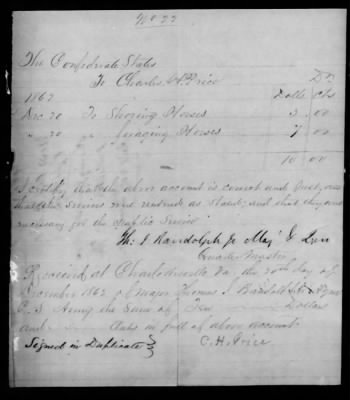 No 22
The Confederate States
To Charles H. Price Dr
1862 Dolls Cts
Dec 20 To Shoeing Horses 3.00
" 20 " Horses 7 00
10 00
I certify that the above account is correct and just, and
that the services were rendered as stated; and that they were
necessary for the Public Service
Th: J Randolph Jr Maj &
Quarter Master
Received at Charlottesville, Va the 20th day of
December 1862 of Major Thomas J Randolph Jr
C. S. Army the sum of Ten Dollars
and Cents in full of above account
Signed in Duplicate
C. H. Price